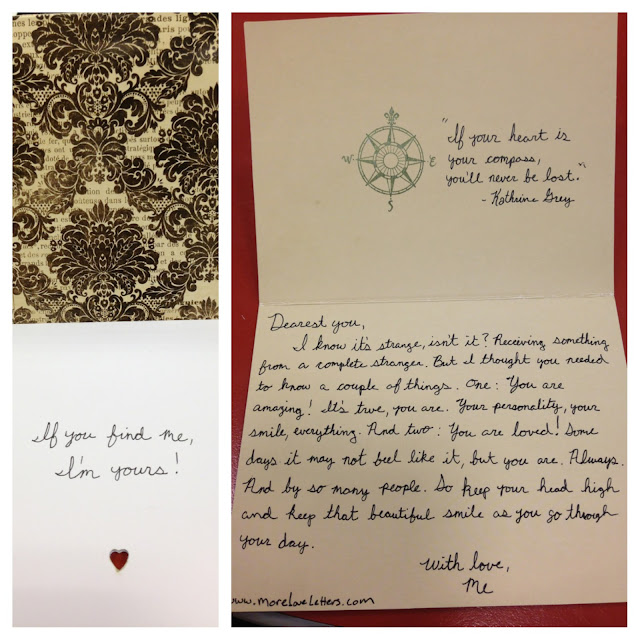 fer, que
dote de
tion des
If you find me,
I'm yours!
N
W E
S
"If your heart is
your compass,
you'll never be lost."
- Kathrine Grey
Dearest you,
I know it's strange, isn't it? Receiving something
from a complete stranger. But I thought you needed
to know a couple of things. One: You are
amazing! It's true, you are. Your personality, your
smile, everything. And two: You are loved! Some
days it may not feel like it, but you are. Always.
And by so many people. So keep your head high
and keep that beautiful smile as you go through
your day.
With love,
Me
www.moreloveletters.com